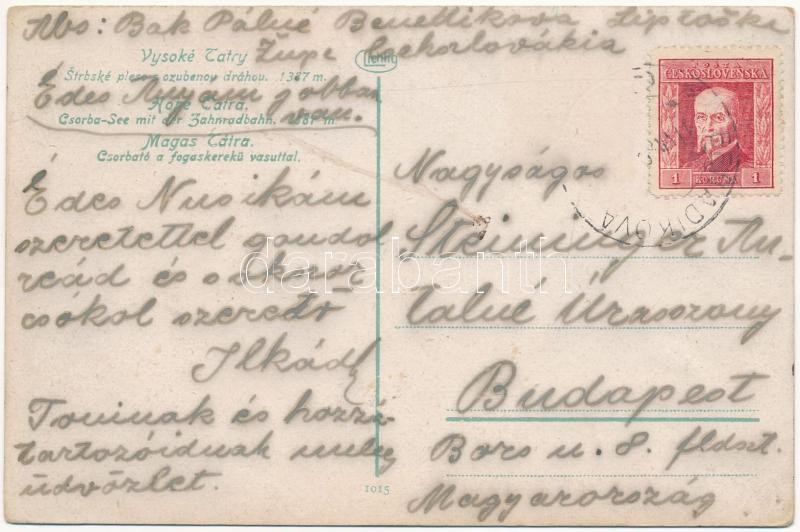 Abs: Bak Pálné Benedikova Liptoske
Župe Czehorlovákia
Vysoké Tatry
Štrbské pleso s ozubenou dráhou. 1387 m.
Édes Anyám jobban
van.
Hohe Tátra.
Csorba-See mit der Zahnradbahn. 1387 m.
Magas Tátra.
Csorbató a fogaskerekü vasuttal.
Édes Nusikám
szeretettel gondol
reád és sokszor
csókol szerető
Ilkád
Toninak és hozzá-
tartozóidnak meleg
üdvözlet.
1015
POŠTA
ČESKOSLOVENSKÁ
1 KORUNA 1
Nagyságos
Steininger An-
talné Úrasszony
Budapest
Bors u. 8. fldszt.
Magyarország
darabanth